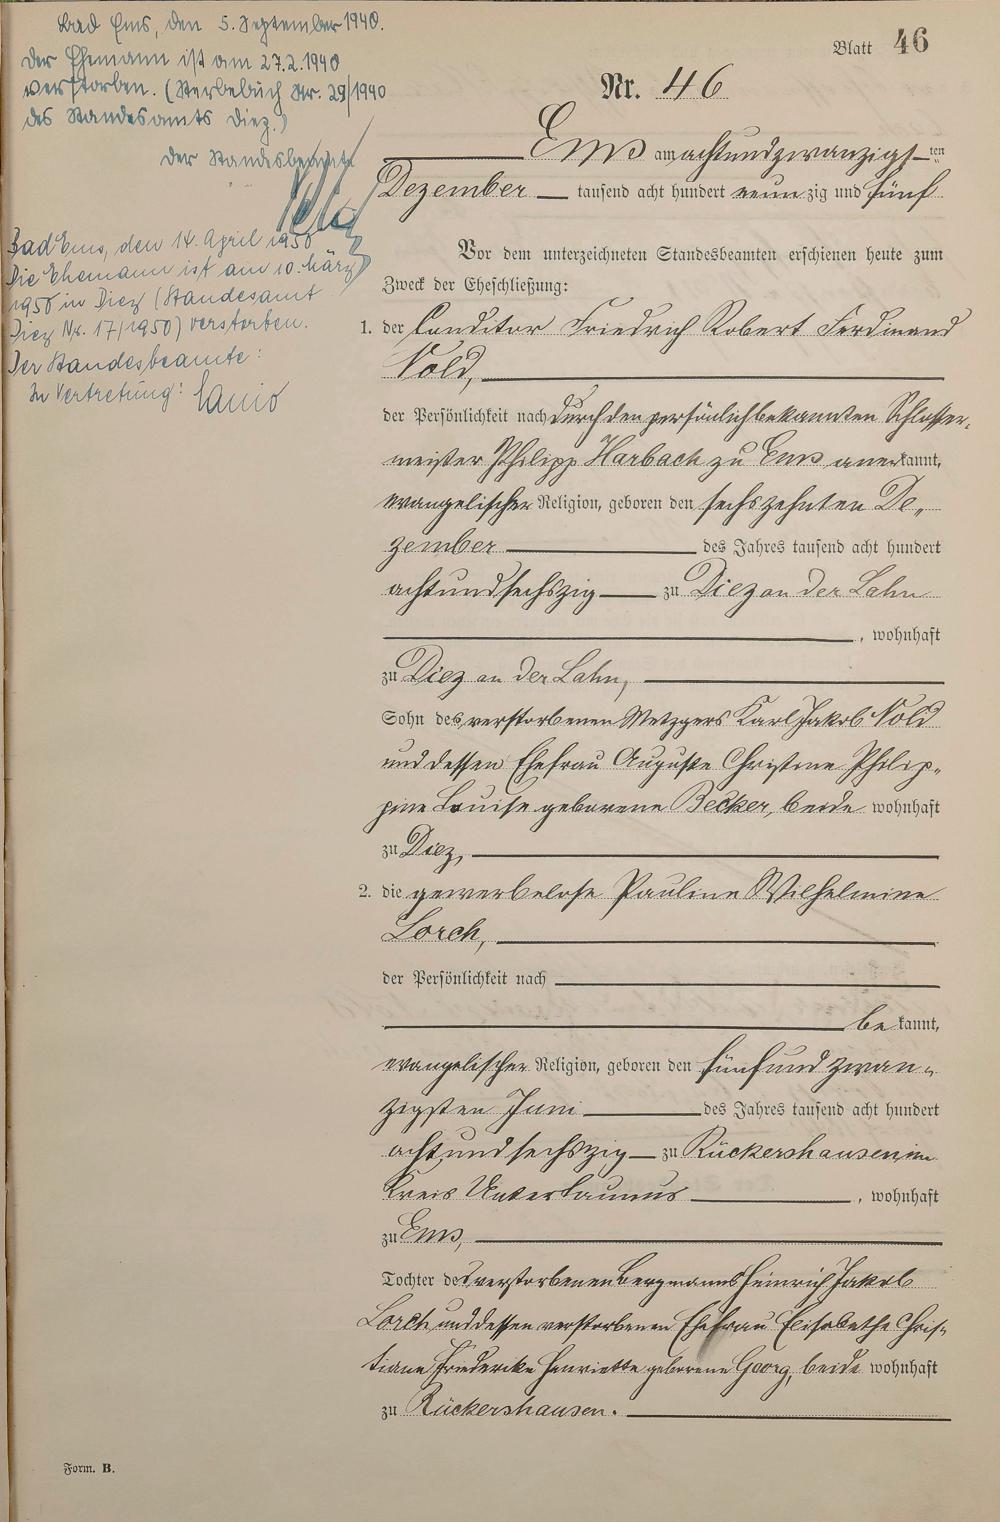 Bad Ems, den 5. September 1940.
Der Ehemann ist am 27.2.1940
verstorben. (Sterbebuch Nr. 29/1940
des Standesamts Diez.)
Der Standesbeamte
Bad Ems, den 14. April 1950
Die Ehemann ist am 10. März
1950 in Diez (Standesamt
Diez Nr. 17/1950) verstorben.
Der Standesbeamte:
In Vertretung:
Blatt 46
Nr. 46
Ems am achtundzwanzigsten
Dezember tausend acht hundert neunzig und fünf
Vor dem unterzeichneten Standesbeamten erschienen heute zum
Zweck der Eheschließung:
1. der Conditor Friedrich Robert Ferdinand
Nold,
der Persönlichkeit nach durch den persönlich bekannten Schlosser-
meister Philipp Harbach zu Ems anerkannt,
evangelischer Religion, geboren den sechszehnten De-
zember des Jahres tausend acht hundert
achtundsechszig zu Diez an der Lahn
, wohnhaft
zu Diez an der Lahn,
Sohn des verstorbenen Metzgers Karl Jakob Nold
und dessen Ehefrau Auguste Christine Philip-
pine Louise geborene Becker, beide wohnhaft
zu Diez,
2. die gewerbelose Pauline Wilhelmine
Lorch,
der Persönlichkeit nach
bekannt,
evangelischer Religion, geboren den fünfundzwan-
zigsten Juni des Jahres tausend acht hundert
achtundsechszig zu Rückershausen, im
Kreis Untertaunus, wohnhaft
zu Ems,
Tochter des verstorbenen Bergmanns Heinrich Jakob
Lorch und dessen verstorbenen Ehefrau Elisabethe Chris-
tiane Friederike Henriette geborene Georg, beide wohnhaft
zu Rückershausen.
Form. B.